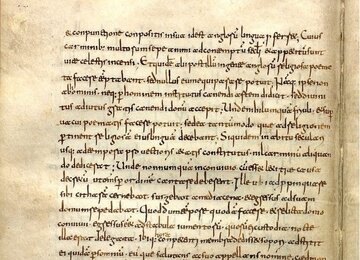 & conpunctione conpositis insua idest anglorum lingua proferret. Cuius
carminibus multorum saepe animi adcontemptum saeculi & appetitum sunt
uitae caelestis accensi. Et quidem & alii post illum ingente anglorum religiosa poema
ta facere temtabant. sed nullus eum aequiparare potuit. Namque ipse non
ab hominibus. neque per hominem institutus canendi artem didicit. sed diuini
tus adiutus gratis canendi donum accepit. Unde nihil umquam friuoli & sup
uacui poematis facere potuit. sed ea tantummodo quae ad religionem
pertinent religiosam eius linguam decebant. Siquidem inhabitu saeculari
usque adtempora prouectioris aetatis constitutus. nil carminum aliquan
do didicerat. Unde nonnumquam inconuiuio cum esset laetitiae causa
decretum ut omnes per ordinem cantare deberent. Ille ubi adpropinquare
sibi citharam cernebat. surgebat amedia caena & egressus adsuam
domum repedabat. Quod dum tempore quodam faceret. & relicta domo
conuiuii egressus esset adstabula iumentorum quorum ei custodia nocte
illa erat delegata. ibique hora conpetenti membra dedisset sopori. adstitit
ei quidam per somnium. eumque salutans ac suo appellans nomine. caedmon